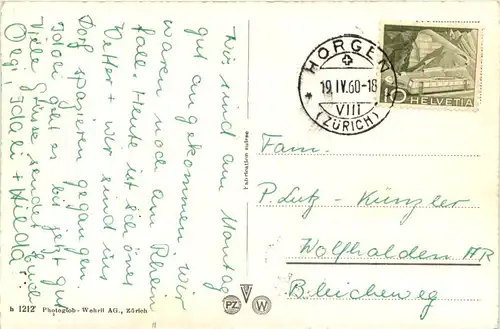 Wir sind am Montag
gut angekommen, wir
waren noch am Rhein
fall. Heute ist schönes
Wetter + wir sind ins
Dorf spazieren gegangen.
Idali geht es bis jetzt gut
Viele Grüsse sendet Euch
Idali + Hilda
HORGEN
19.IV.60-18
VIII
(ZÜRICH)
10 HELVETIA
Fam.
P. Lutz - Künzler
Wolfhalden AR
Bleicheweg
Fabrication suisse
PZ W
b 1212 Photoglob-Wehrli AG., Zürich